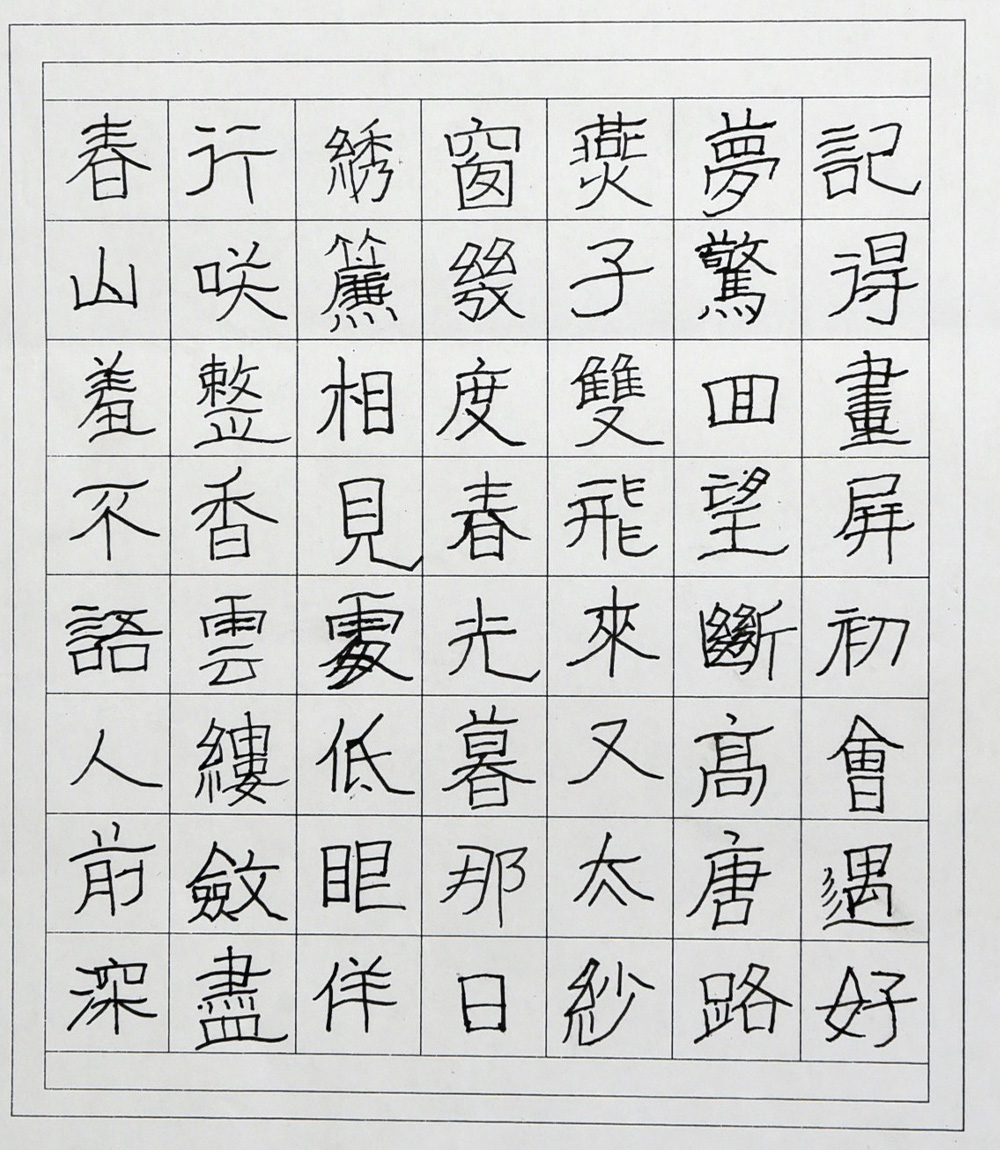 記得畫屏初會遇好
夢驚囬望斷高唐路
燕子雙飛來又去紗
窗幾度春光暮那日
綉簾相見處低眼佯
行咲整香雲縷斂盡
春山羞不語人前深